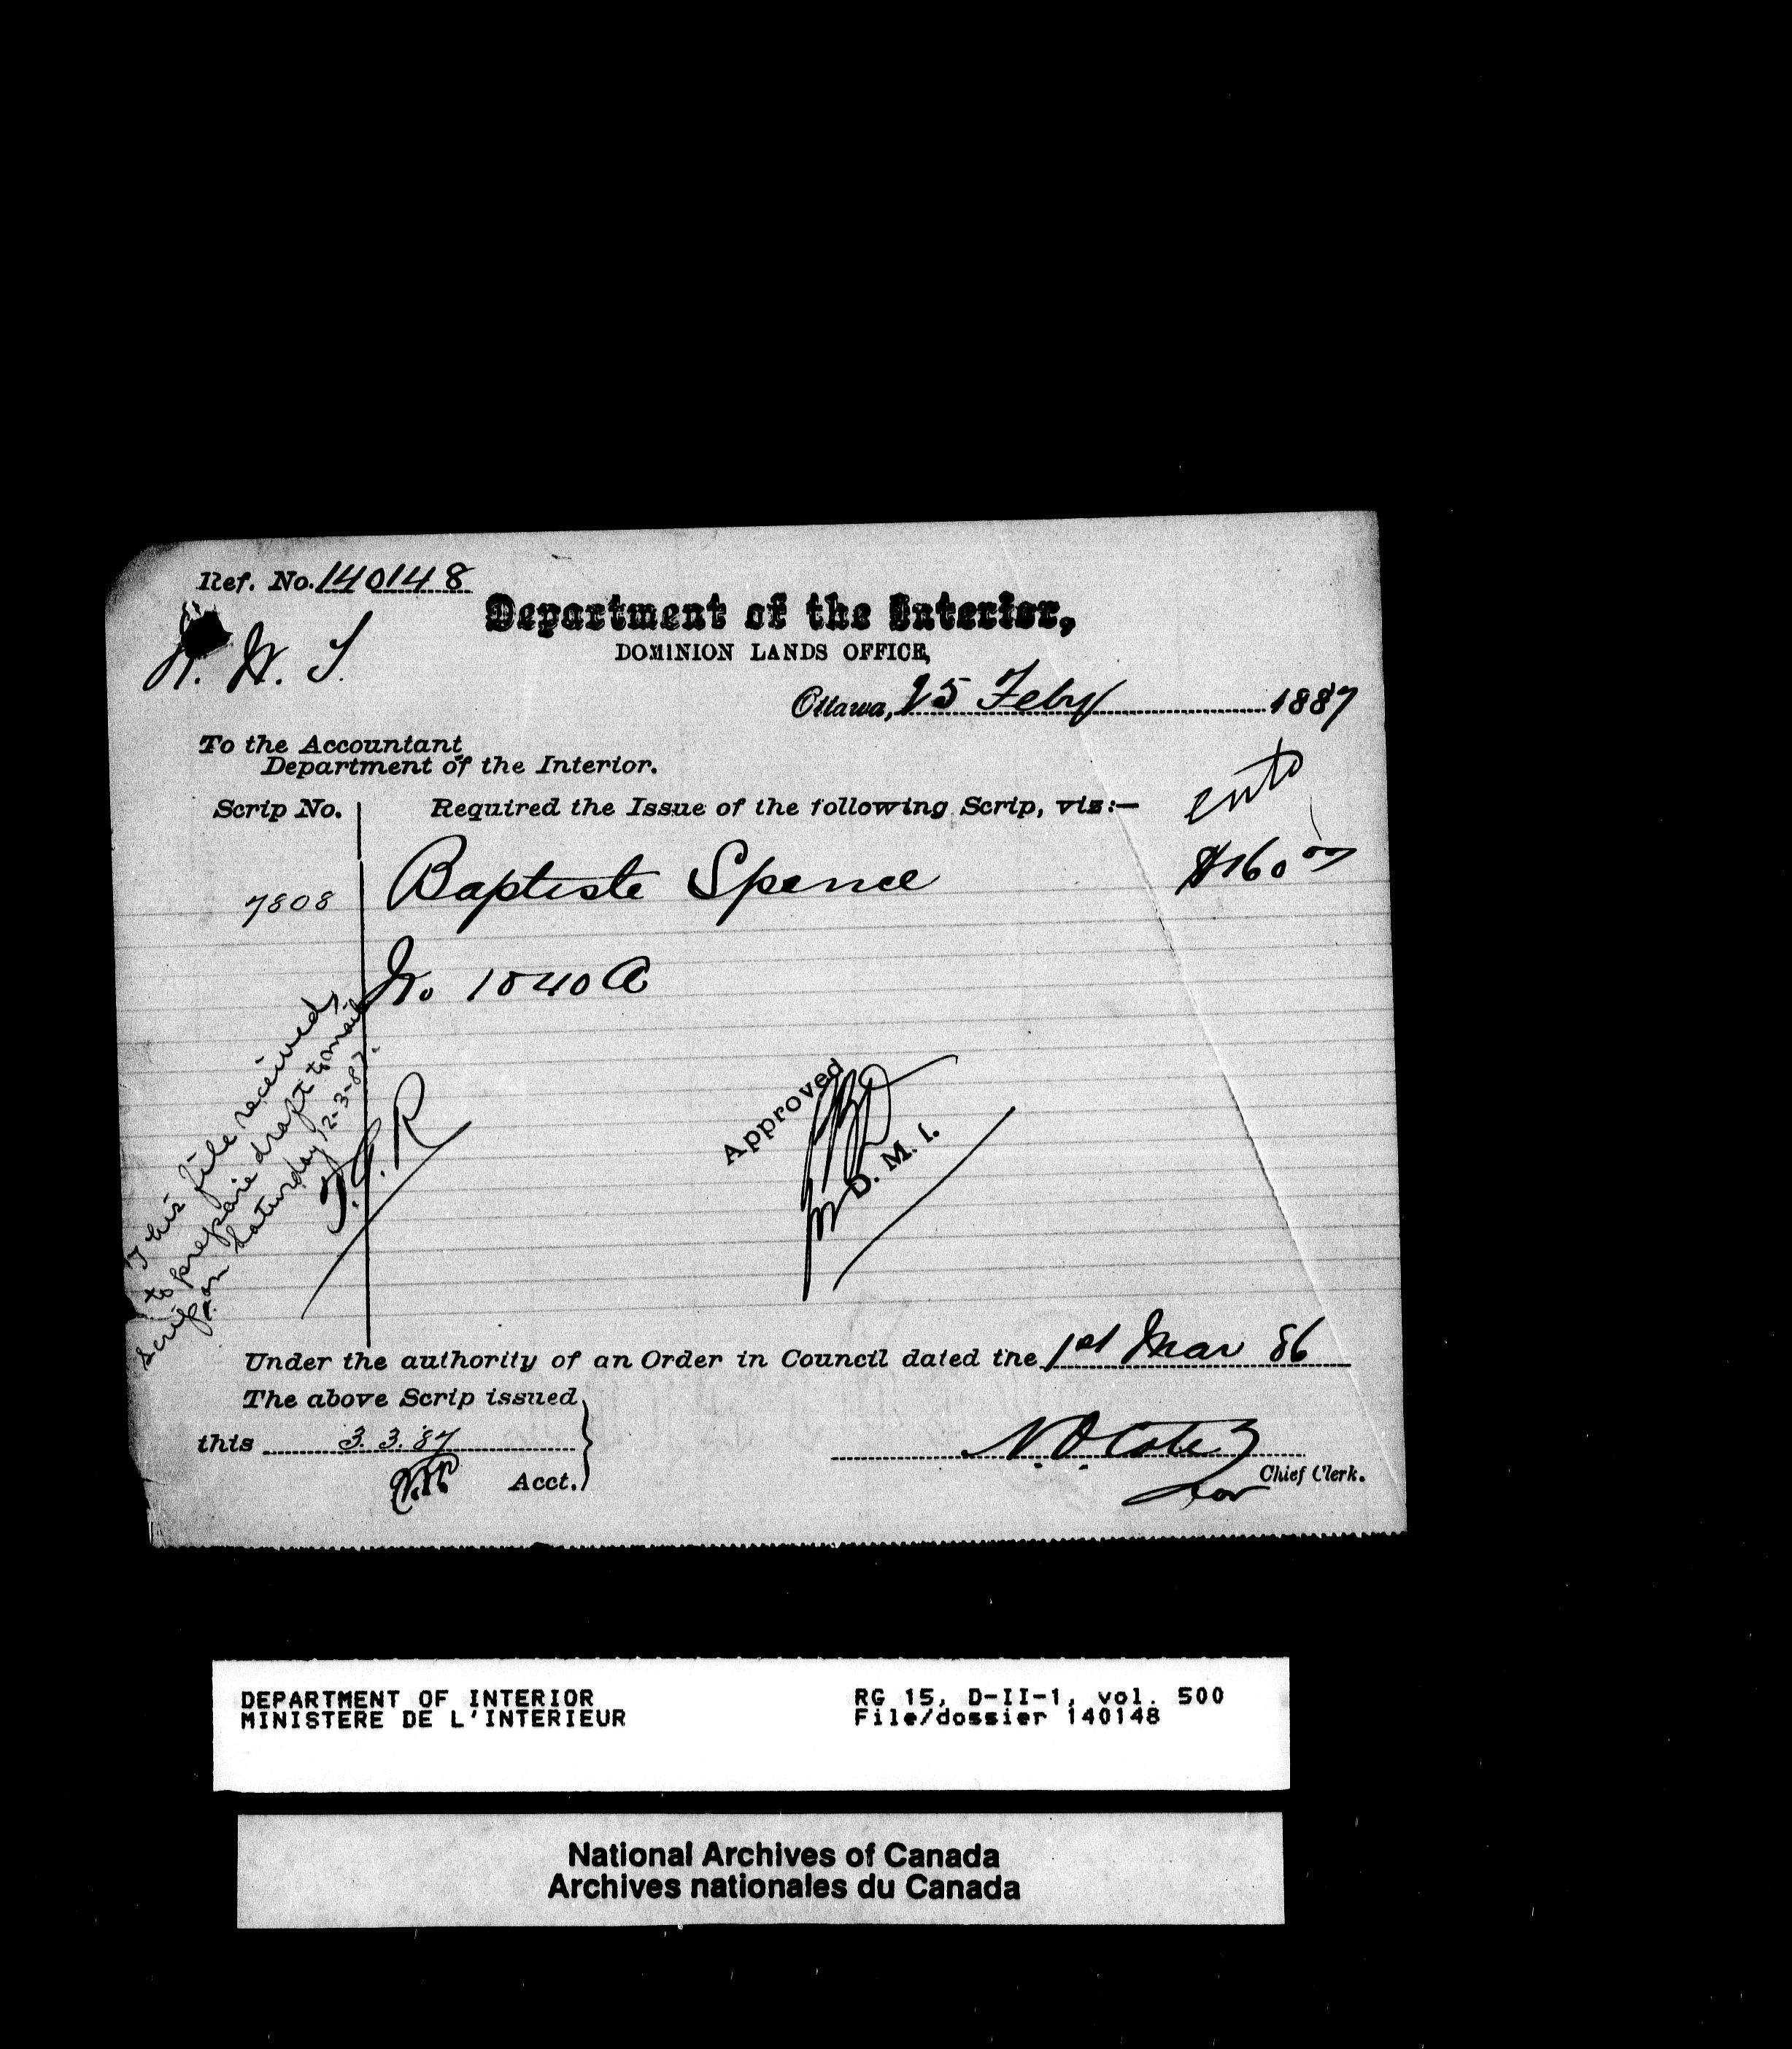 Ref. No. 140148
N. W. T.
Department of the Interior,
DOMINION LANDS OFFICE,
Ottawa, 25 Feby 1887
To the Accountant
Department of the Interior.
Scrip No. Required the Issue of the following Scrip, viz:—
7808 Baptiste Spence $160 00
No 1040 A
This file received,
to prepare draft to mail
scrip on Saturday 12-3-87.
J.G.R
Approved
D. M. I.
Under the authority of an Order in Council dated the 1st Mar 86
The above Scrip issued
this 3. 3. 87
Acct.
N.O. Cote
for Chief Clerk.
DEPARTMENT OF INTERIOR
MINISTERE DE L'INTERIEUR
RG 15, D-II-1, vol. 500
File/dossier 140148
National Archives of Canada
Archives nationales du Canada